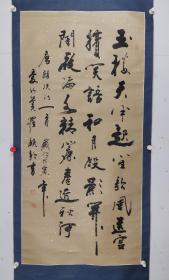 玉樓天半起笙歌風送宮
嬪笑語和月殿影開
聞夜漏水精簾卷近秋河
唐顧況詩一首